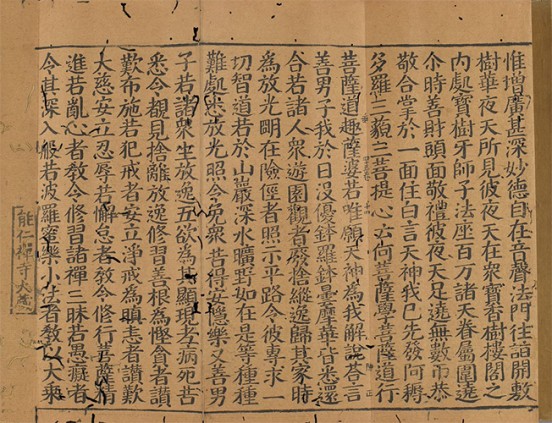 惟增廣甚深妙德自在音聲法門往詣開敷
樹華夜天所見彼夜天在衆寶香樹樓閣之
內處寶樹牙師子法座百万諸天眷屬圍遶
尒時善財頭面敬禮彼夜天足遶無數帀恭
敬合掌於一面住白言天神我已先發阿耨
多羅三藐三菩提心云何菩薩學菩薩道行
菩薩道趣薩婆若唯願天神爲我解說荅言
善男子我於日没優鉢羅鉢曇摩華皆悉還
合若諸人衆遊園觀者發捨縱逸歸其家時
爲放光明在險徑者照示平路令彼專求一
切智道若於山巖深水曠野如在是等種種
難處悉放光照令免衆苦得安隱樂又善男
子若諸衆生放逸五欲爲其顯現老病死苦
悉令覩見捨離放逸修習善根爲慳貪者讃
歎布施若犯戒者安立淨戒爲瞋恚者讃歎
大慈安立忍辱若懈怠者教令修行菩薩精
進若亂心者教令修習諸禪三昧若愚癡者
令其深入般若波羅蜜樂小法者教以大乘
能仁禪寺大藏